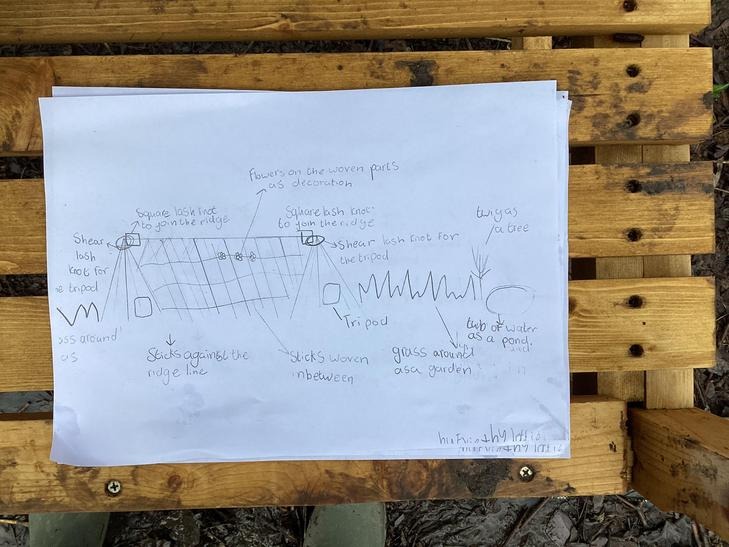 Flowers on the woven parts
as decoration
Square lash knot
to join the ridge
Square lash knot
to join the ridge
twig as
a tree
Shear
lash
knot for
tripod
Shear lash knot for
the tripod
Tripod
around
as
Sticks against the
ridge line
Sticks woven
inbetween
grass around
as a garden
tub of water
as a pond.